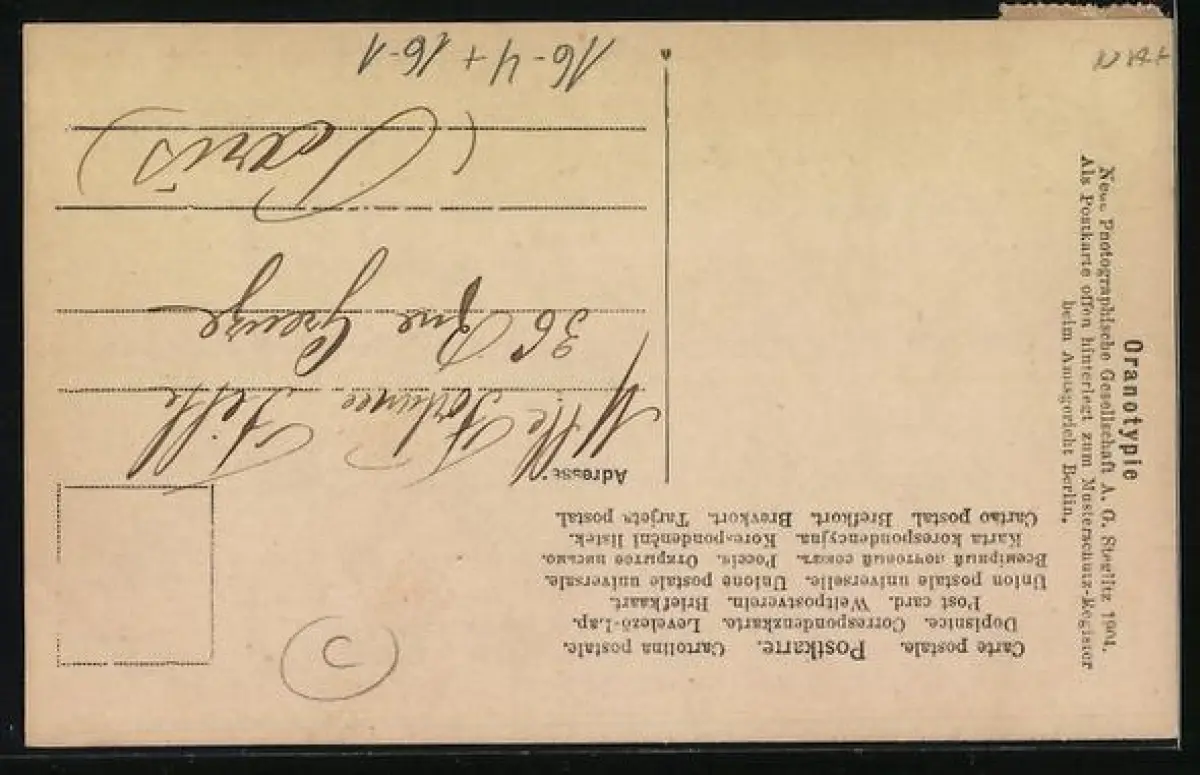 Carte postale. Postkarte. Cartolina postale.
Dopisnice. Correspondenzkarte. Levelező-Lap.
Post card. Weltpostverein. Briefkaart.
Union postale universelle. Unione postale universale.
Всемірный почтовый союзъ. Россія. Открытое письмо.
Karta korespondencyjna. Korespondenční listek.
Cartao postal. Brefkort. Brevkort. Tarjeta postal.
Adresse:
Mlle
36 Rue Greuze
(Paris)
16-4 + 16-1
Oranotypie
Neue Photographische Gesellschaft A. G. Steglitz 1904.
Als Postkarte offen hinterlegt zum Musterschutz-Register
beim Amtsgericht Berlin.